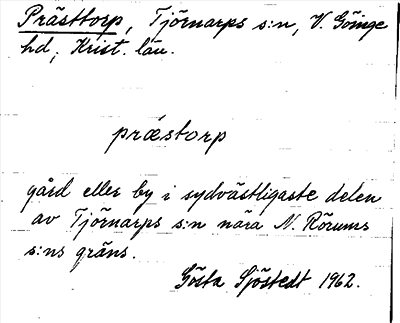 Prästtorp, Tjörnarps s:n, V. Göinge
hd, Krist. län.
præstorp
gård eller by i sydvästligaste delen
av Tjörnarps s:n nära N. Rörums
s:ns gräns.
Gösta Sjöstedt 1962.